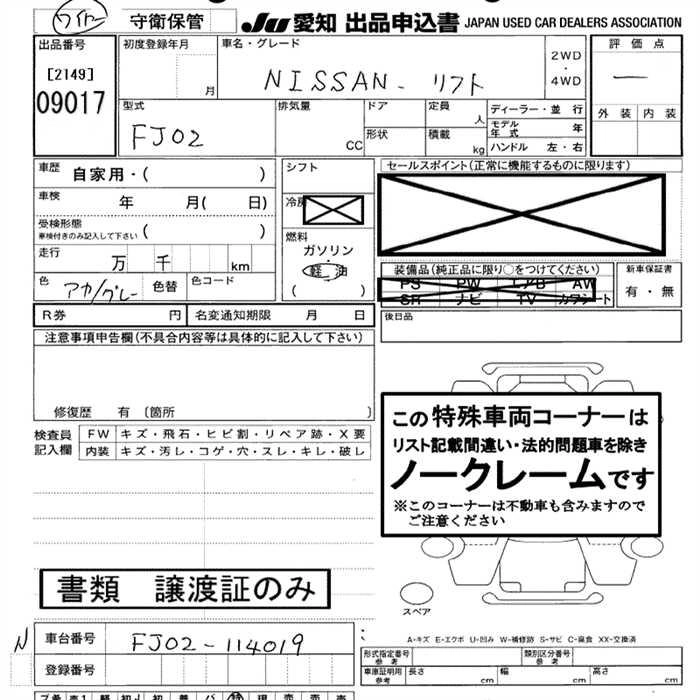 ワイヤー 守衛保管 JU 愛知 出品申込書 JAPAN USED CAR DEALERS ASSOCIATION
出品番号 初度登録年月 車名・グレード 2WD・4WD 評価点
[2149] 月 NISSAN - リフト ー
09017 外装 内装
型式 排気量 ドア 定員 ディーラー・並 行
FJ02 CC 人 モデル年式 年
形状 積載 kg ハンドル 左・右
車歴 自家用・( ) シフト セールスポイント(正常に機能するものに限ります)
車検 年 月( 日) 冷房
受検形態 ( )
車検付きのみ記入して下さい
燃料
走行 万 千 km ガソリン
軽油
( )
色 アカ/グレー 色替 色コード
装備品(純正品に限り○をつけてください) 新車保証書
PS PW エアB AW 有・無
SR ナビ TV カワシート
R券 円 名変通知期限 月 日 後日品
注意事項申告欄(不具合内容等は具体的に記入して下さい)
修復歴 有 〔箇所 〕
検査員 記入欄
FW キズ・飛石・ヒビ割・リペア跡・X要
内装 キズ・汚レ・コゲ・穴・スレ・キレ・破レ
この特殊車両コーナーは
リスト記載間違い・法的問題車を除き
ノークレームです
※このコーナーは不動車も含みますので
ご注意ください
書類 譲渡証のみ
スペア
A-キズ E-エクボ U-凹み W-補修跡 S-サビ C-腐食 XX-交換済
N 車台番号 FJ02-114019
登録番号
形式指定番号 参考 類別区分番号 参考
車庫証明用 参考 長さ cm 幅 cm 高さ cm